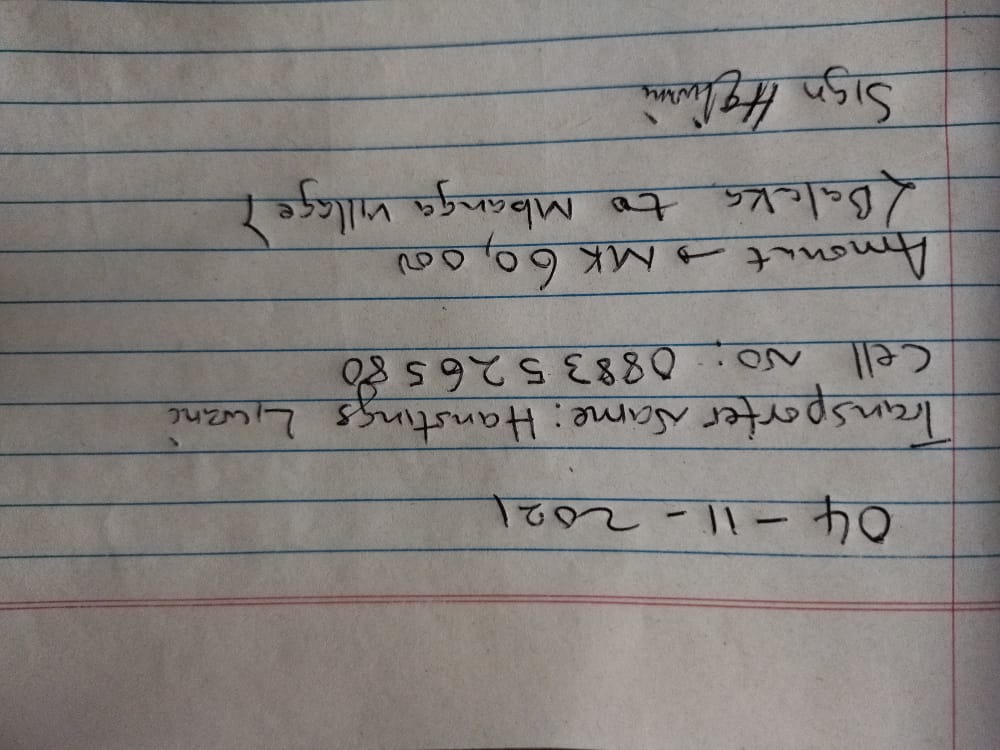 04 - 11 - 2021
Transporter Name: Hanstings Liwani
Cell No: 0883526580
Amount → MK 60,000
(Balaka to Mbanga Village)
Sign